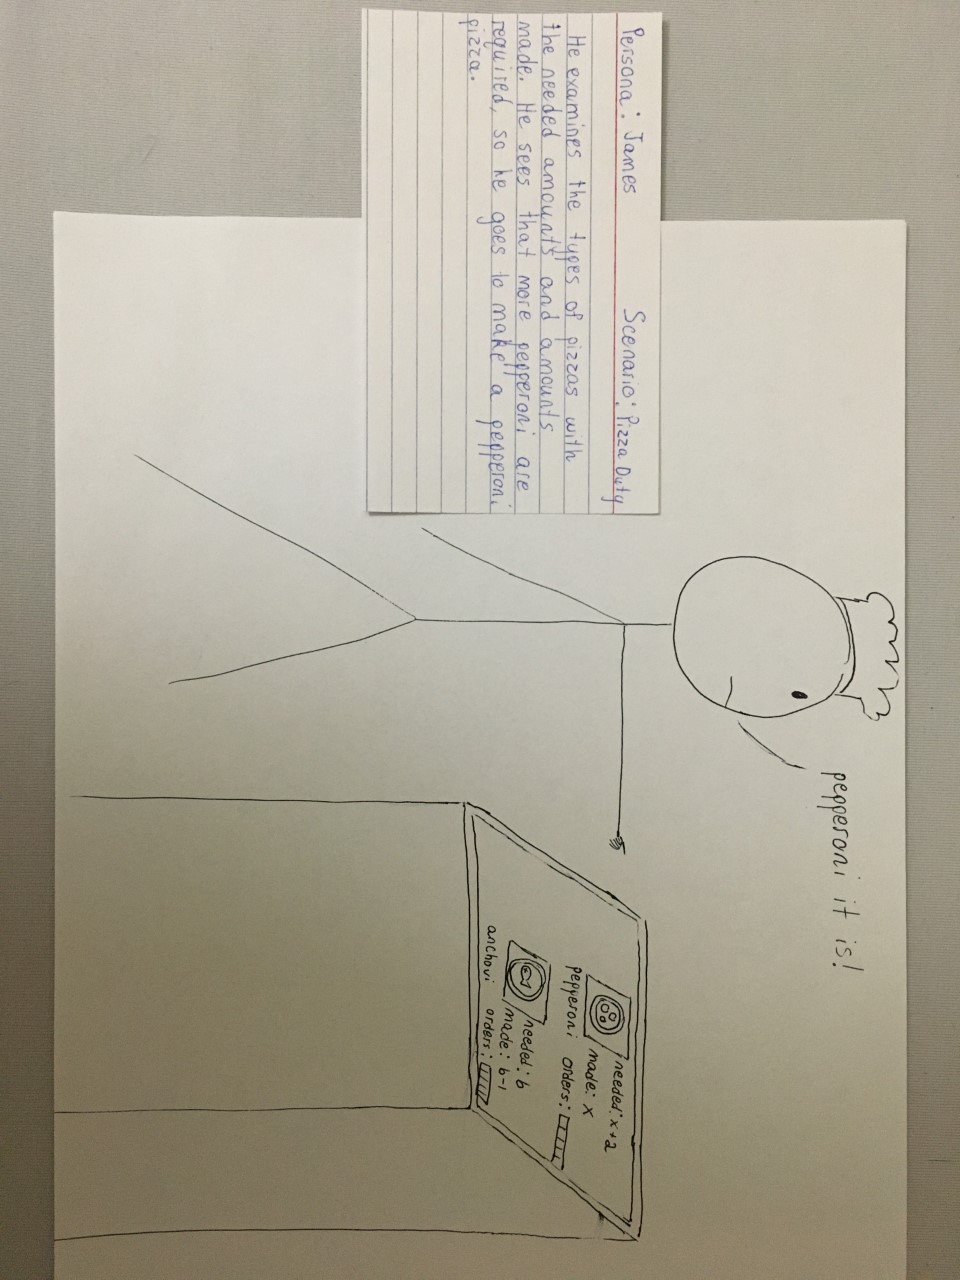 Persona: James Scenario: Pizza Duty
He examines the types of pizzas with
the needed amounts and amounts
made. He sees that more pepperoni are
required, so he goes to make a pepperoni
pizza.
pepperoni it is!
needed: x+2
made: x
pepperoni orders:
needed: b
made: b-1
anchovi orders: